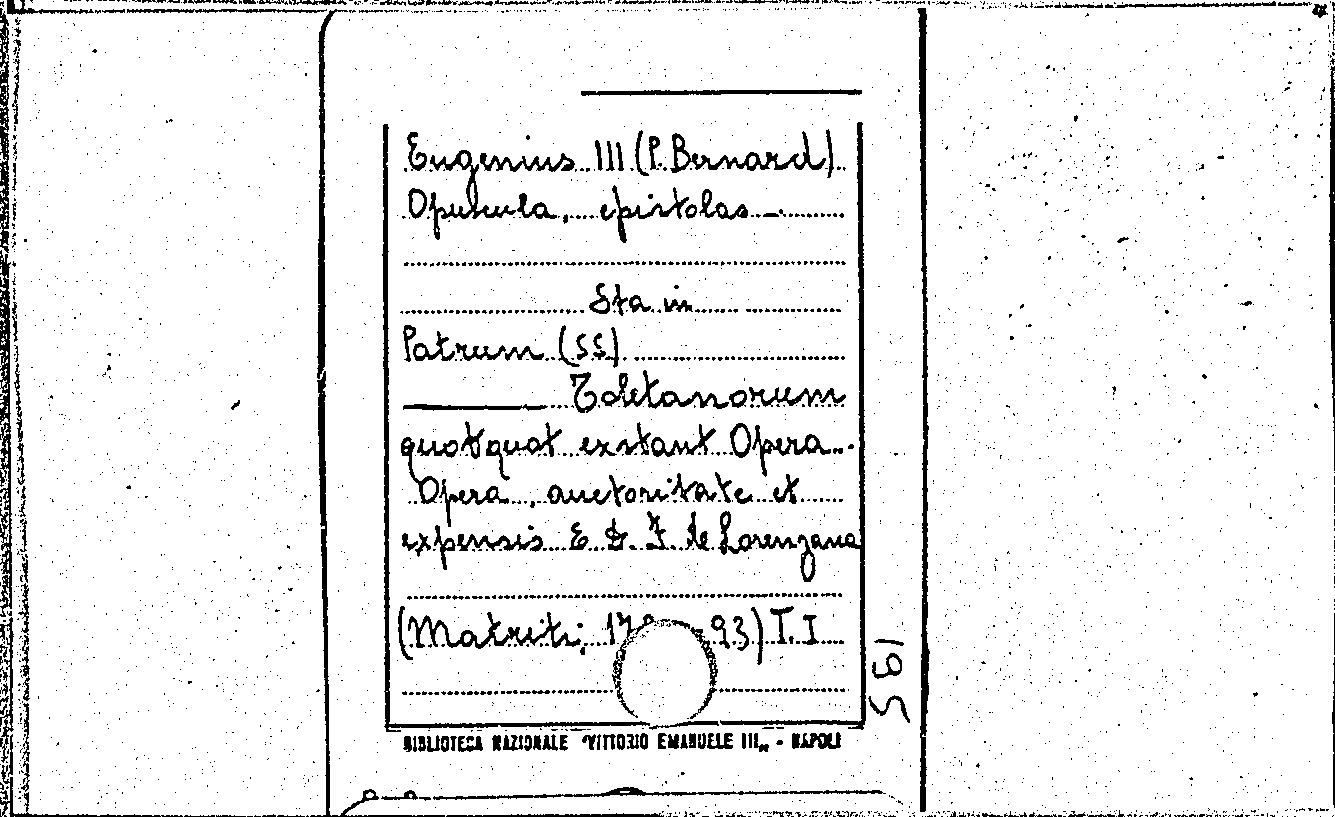 Eugenius III (P. Bernard)
Opuscula, epistolas
Sta in
Patrum (SS)
Toletanorum
quotquot exstant Opera
Opera, auctoritate et
expensis E D. F. de Lorenzana
(Matriti, 93) T. I
195
BIBLIOTECA NAZIONALE "VITTORIO EMANUELE III„ - NAPOLI